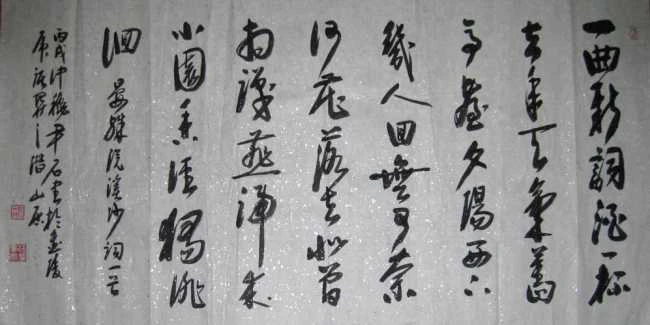 一曲新詞酒一杯
去年天氣舊
亭臺夕陽西下
幾人回無可奈
何花落去似曾
相識燕歸來
小園香徑獨徘
徊 晏殊浣溪沙詞一首
丙戌仲穐尹石書於金陵